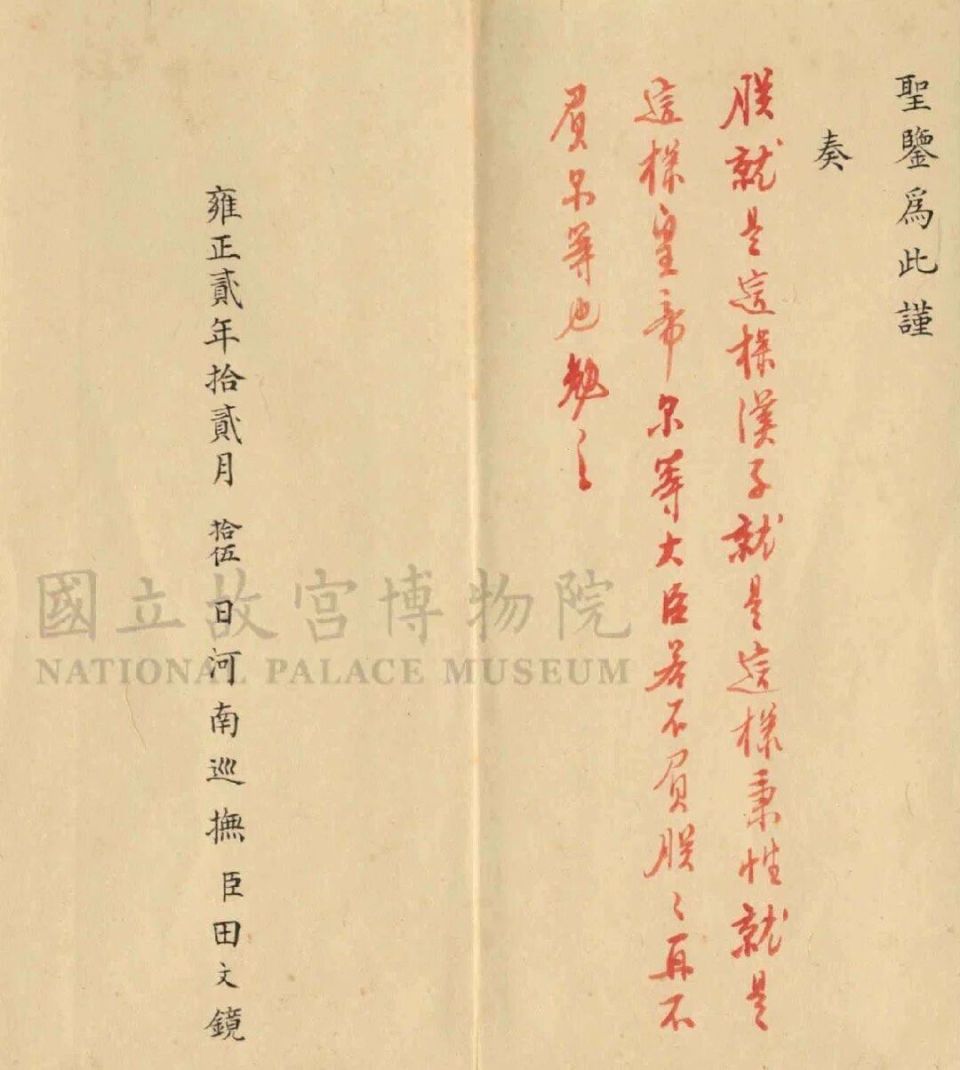 聖鑒為此謹
奏
朕就是這樣漢子就是這樣秉性就是
這樣皇帝尔等大臣若不負朕〻再不
負尔等也勉之
雍正貳年拾貳月拾伍日河南巡撫臣田文鏡
國立故宮博物院
NATIONAL PALACE MUSEUM